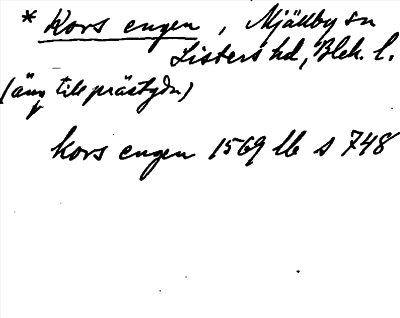 * Kors engen, Mjällby sn
Listers hd, Blek. l.
(äng till prästgdn)
kors engen 1569 lb s 748